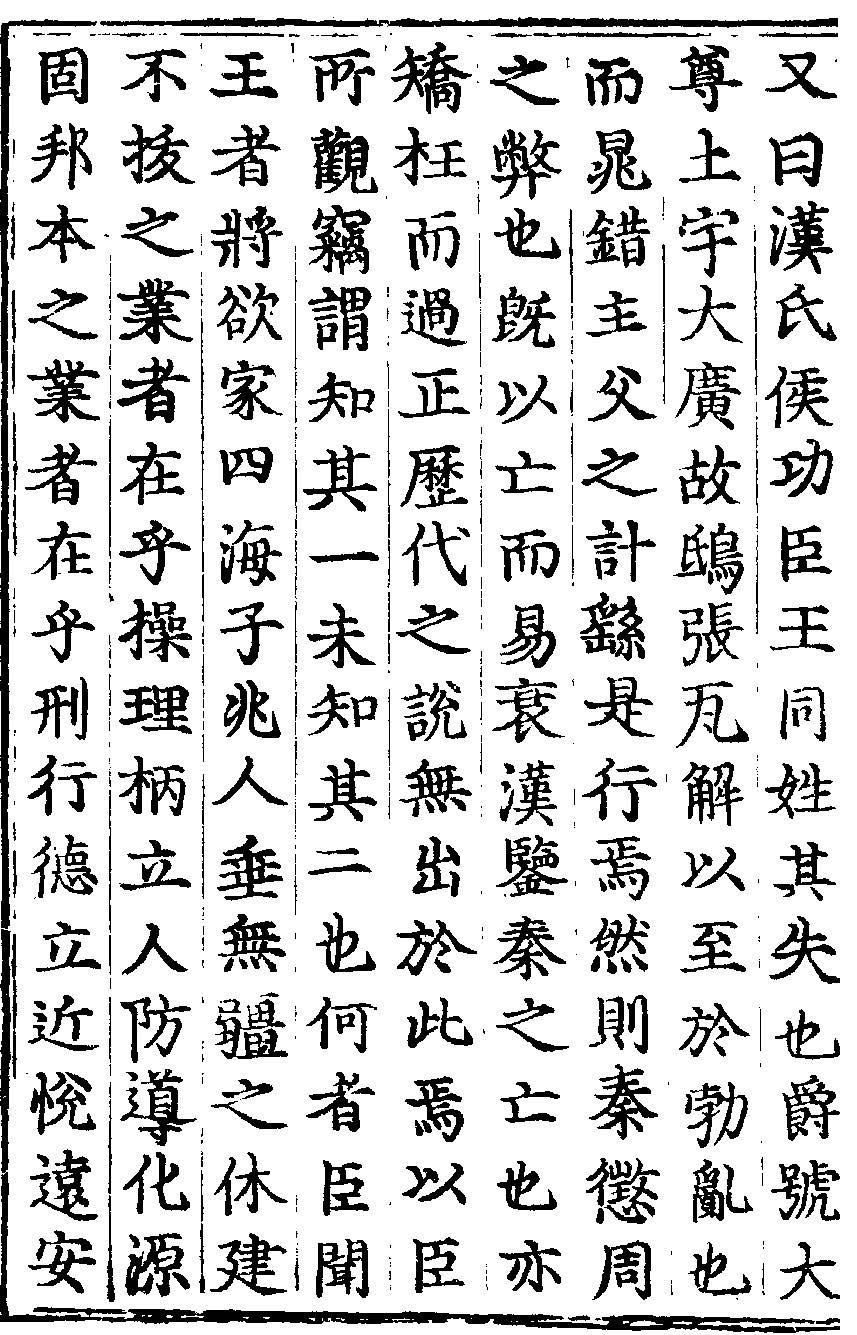 又曰漢氏侯功臣王同姓其失也爵號大
尊土宇大廣故鴟張瓦解以至於勃亂也
而晁錯主父之計繇是行焉然則秦懲周
之弊也旣以亡而易衰漢鑒秦之亡也亦
矯枉而過正歷代之說無出於此焉以臣
所觀竊謂知其一未知其二也何者臣聞
王者將欲家四海子兆人垂無疆之休建
不拔之業者在乎操理柄立人防導化源
固邦本之業者在乎刑行德立近悅遠安